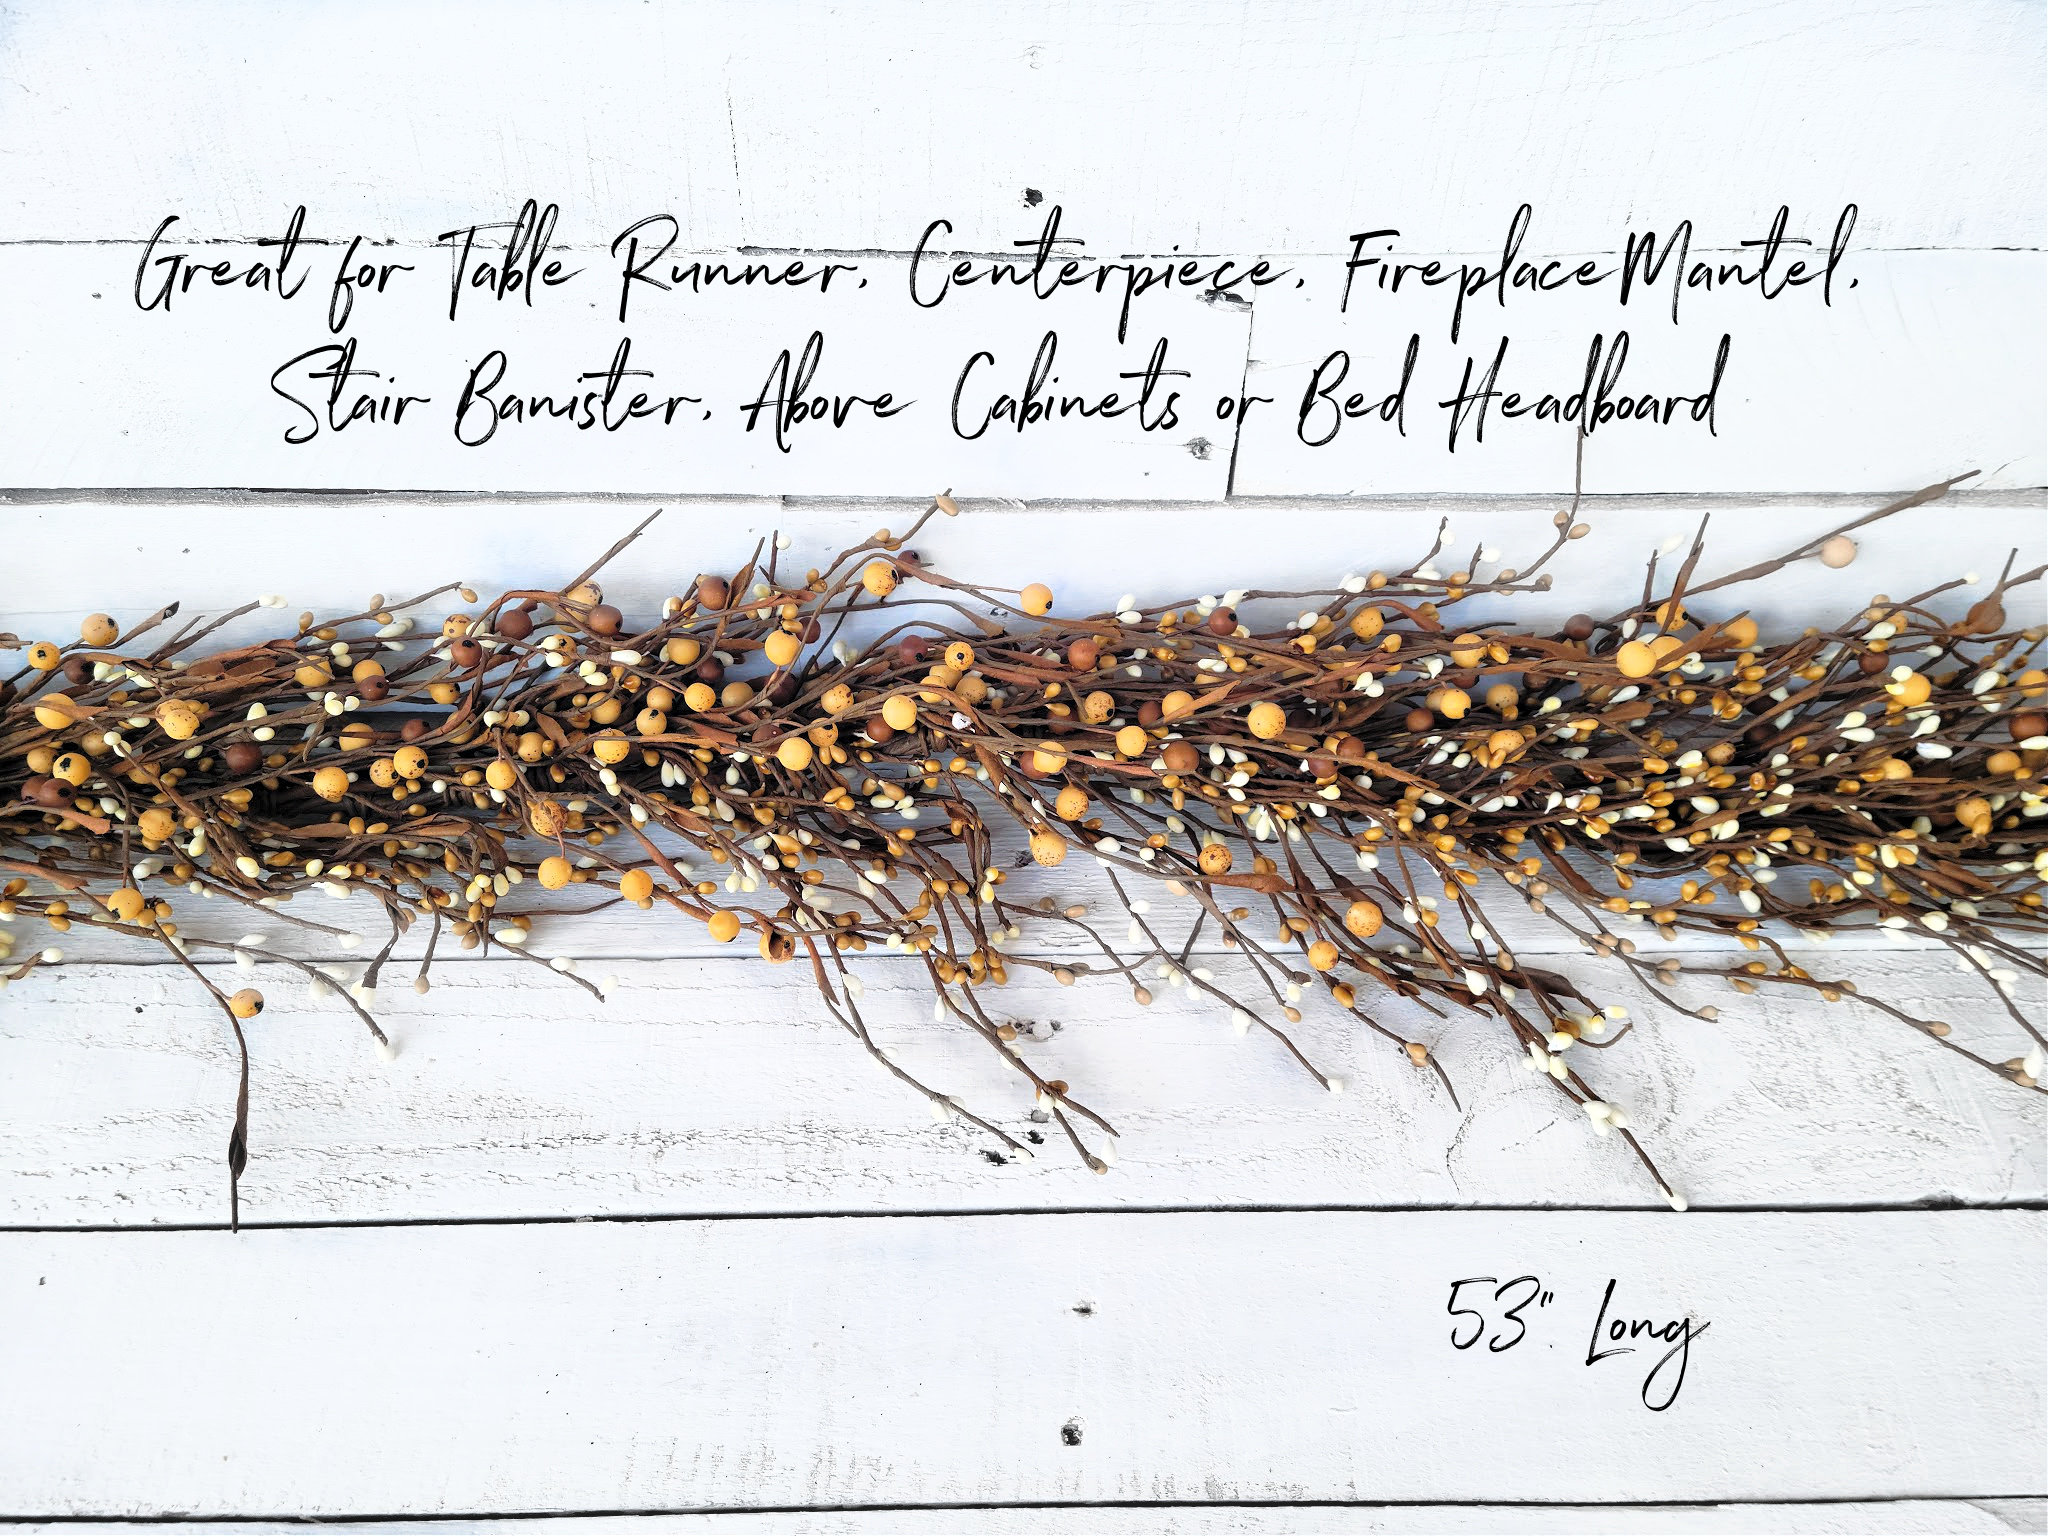 Great for Table Runner, Centerpiece, Fireplace Mantel,
Stair Banister, Above Cabinets or Bed Headboard
53". Long